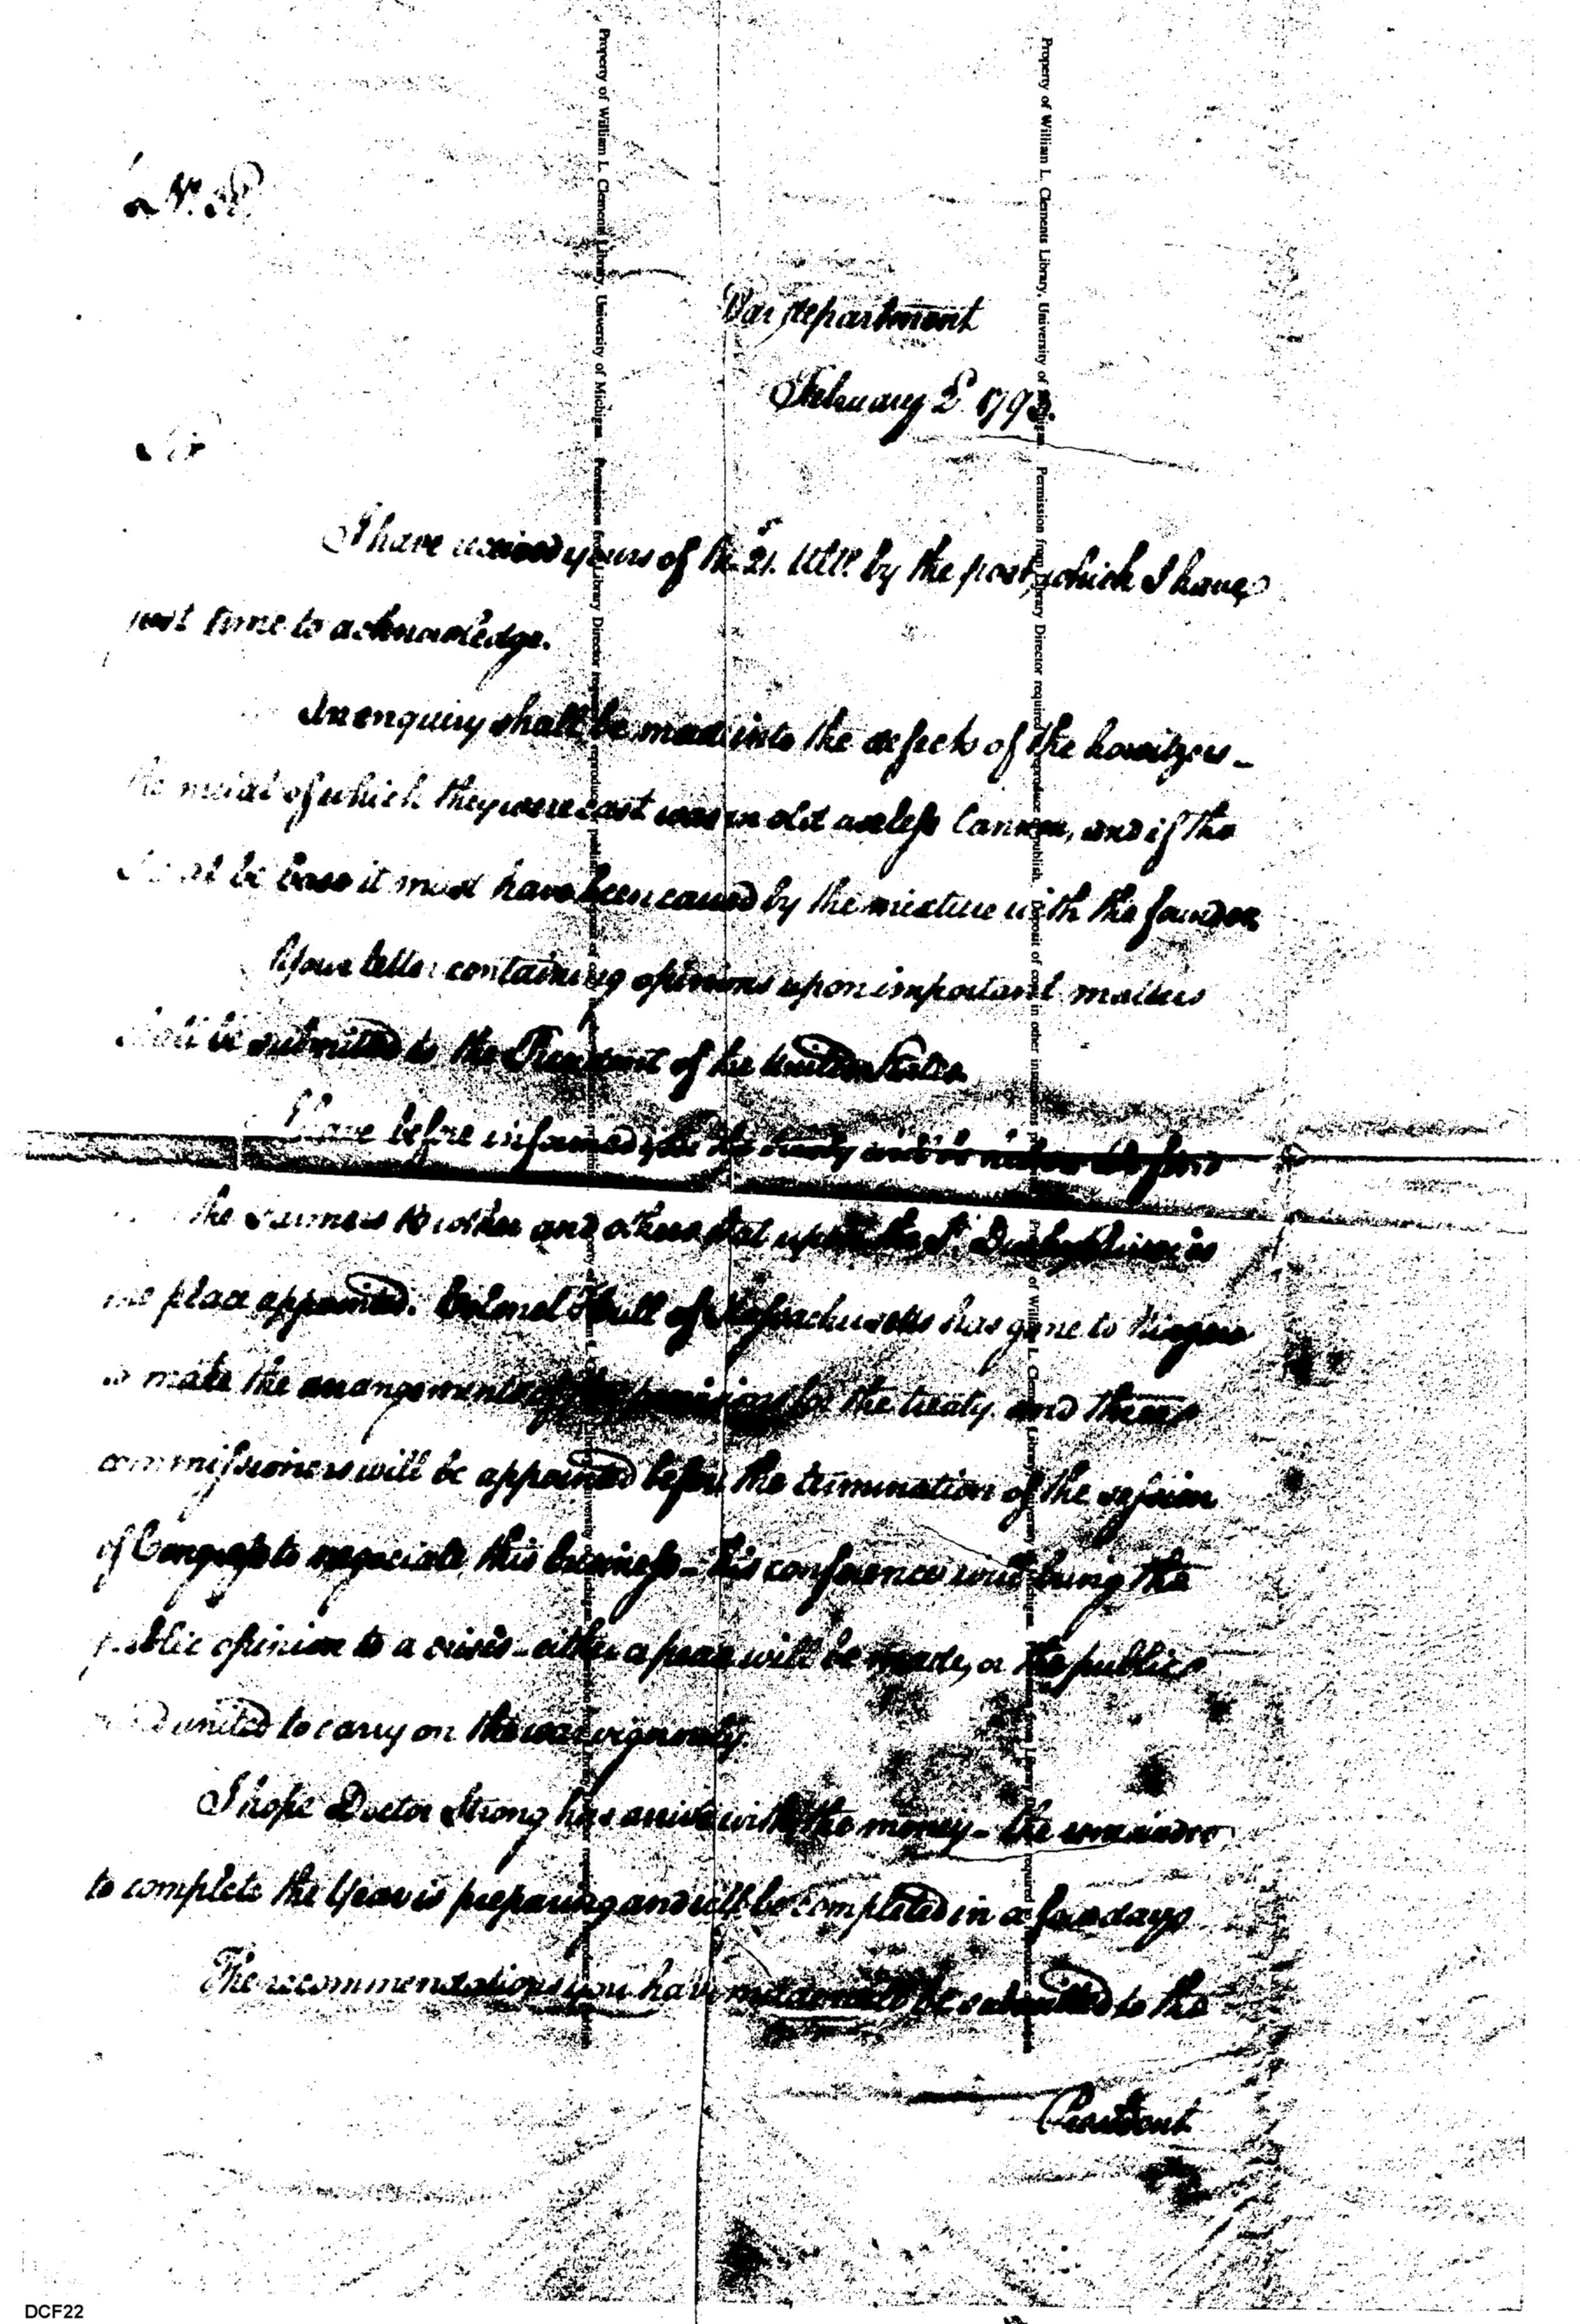 War department
February 2d 1793.
Sir
I have received yours of the 21. Ulto. by the post, which I have
just time to acknowledge.
An enquiry shall be made into the defects of the howitzers –
the metal of which they were cast was in old useless Cannon, and if the
metal be base it must have been caused by the mixture with the founder
Your letter containing opinions upon important matters
shall be submitted to the President of the United States.
I have before informed you the treaty will be
the Farmers Brother and others state upon the
the place appointed. Colonel Hull of Massachusetts has gone to Niagara
to make the arrangements of the provisions for the treaty and three
commissioners will be appointed before the termination of the session
of Congress to negociate this business – this conference will bring the
public opinion to a crisis – either a peace will be made, or the public
mind united to carry on the war vigorously.
I hope Doctor Strong has arrived with the money – the remainder
to complete the Year is preparing and will be completed in a few days
The recommendations you have made will be submitted to the
President
Property of William L. Clements Library, University of Michigan. Permission from Library Director required to reproduce or publish.
Property of William L. Clements Library, University of Michigan. Permission from Library Director required to reproduce or publish. Deposit of copies in other institutions
DCF22